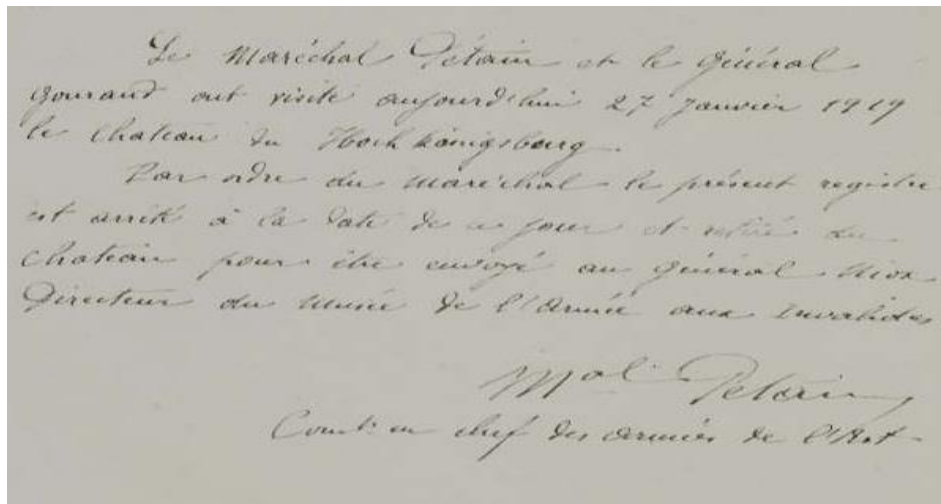 Le Maréchal Pétain et le Général
Gouraud ont visité aujourd'hui 27 Janvier 1919
le Chateau du Hoch Königsburg.
Par ordre du Maréchal le présent registre
est arrêté à la date de ce jour et retiré du
Chateau pour être envoyé au Général Niox
Directeur du Musée de l'Armée aux Invalides
Mal Pétain
Comt en chef des armées de l'Est